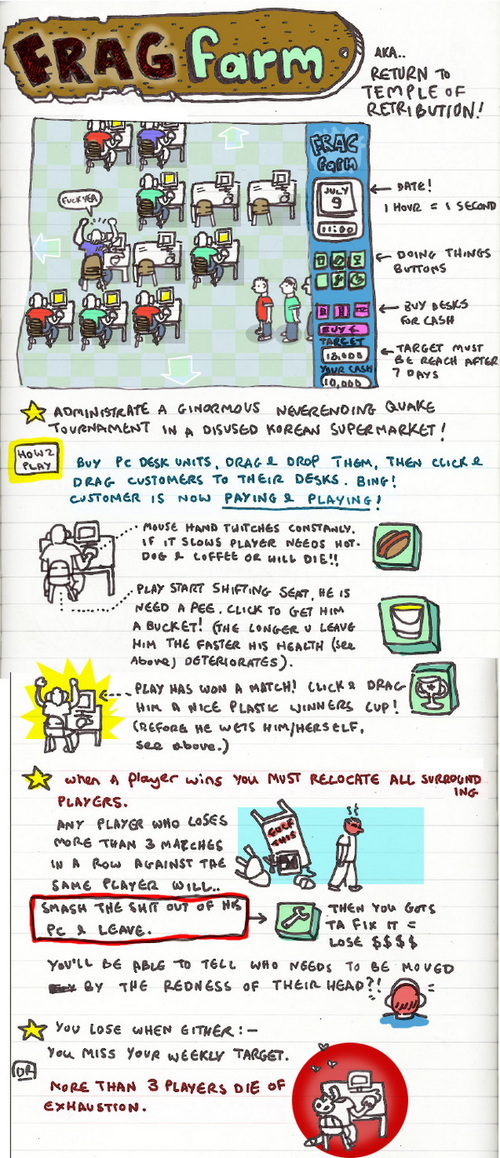 FRAG farm
AKA..
RETURN TO
TEMPLE OF
RETRIBUTION!
FUCK YEA
FRAG
farm
JULY
9
11:00
BUY
TARGET
18,000
YOUR CASH
10,000
DATE!
1 HOUR = 1 SECOND
DOING THINGS
BUTTONS
BUY DESKS
FOR CASH
TARGET MUST
BE REACH AFTER
7 DAYS
ADMINISTRATE A GINORMOUS NEVERENDING QUAKE
TOURNAMENT IN A DISUSED KOREAN SUPERMARKET!
HOW 2
PLAY
BUY PC DESK UNITS, DRAG & DROP THEM, THEN CLICK &
DRAG CUSTOMERS TO THEIR DESKS. BING!
CUSTOMER IS NOW PAYING & PLAYING!
MOUSE HAND TWITCHES CONSTANLY.
IF IT SLOWS PLAYER NEEDS HOT-
DOG & COFFEE OR WILL DIE!!
PLAY START SHIFTING SEAT, HE IS
NEED A PEE. CLICK TO GET HIM
A BUCKET! (THE LONGER U LEAVE
HIM THE FASTER HIS HEALTH (see
Above) DETERIORATES).
PLAY HAS WON A MATCH! CLICK & DRAG
HIM A NICE PLASTIC WINNERS CUP!
(BEFORE HE WETS HIM/HERSELF,
see above.)
when a player wins you MUST RELOCATE ALL SURROUND
ING
PLAYERS.
ANY PLAYER WHO LOSES
MORE THAN 3 MATCHES
IN A ROW AGAINST THE
SAME PLAYER WILL..
SMASH THE SHIT OUT OF HIS
PC & LEAVE.
THEN YOU GOTS
TA FIX IT =
LOSE $$$$
YOU'LL BE ABLE TO TELL WHO NEEDS TO BE MOVED
BY THE REDNESS OF THEIR HEAD?!
YOU LOSE WHEN EITHER:-
YOU MISS YOUR WEEKLY TARGET.
OR
MORE THAN 3 PLAYERS DIE OF
EXHAUSTION.